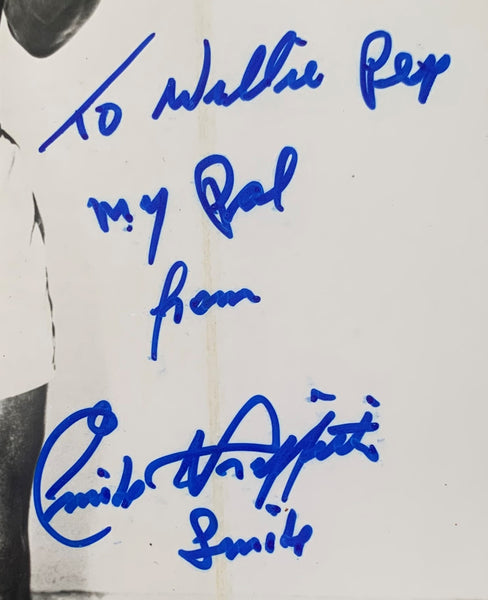 To Willie Pep
my Pal
from
Emile Griffith
Smile